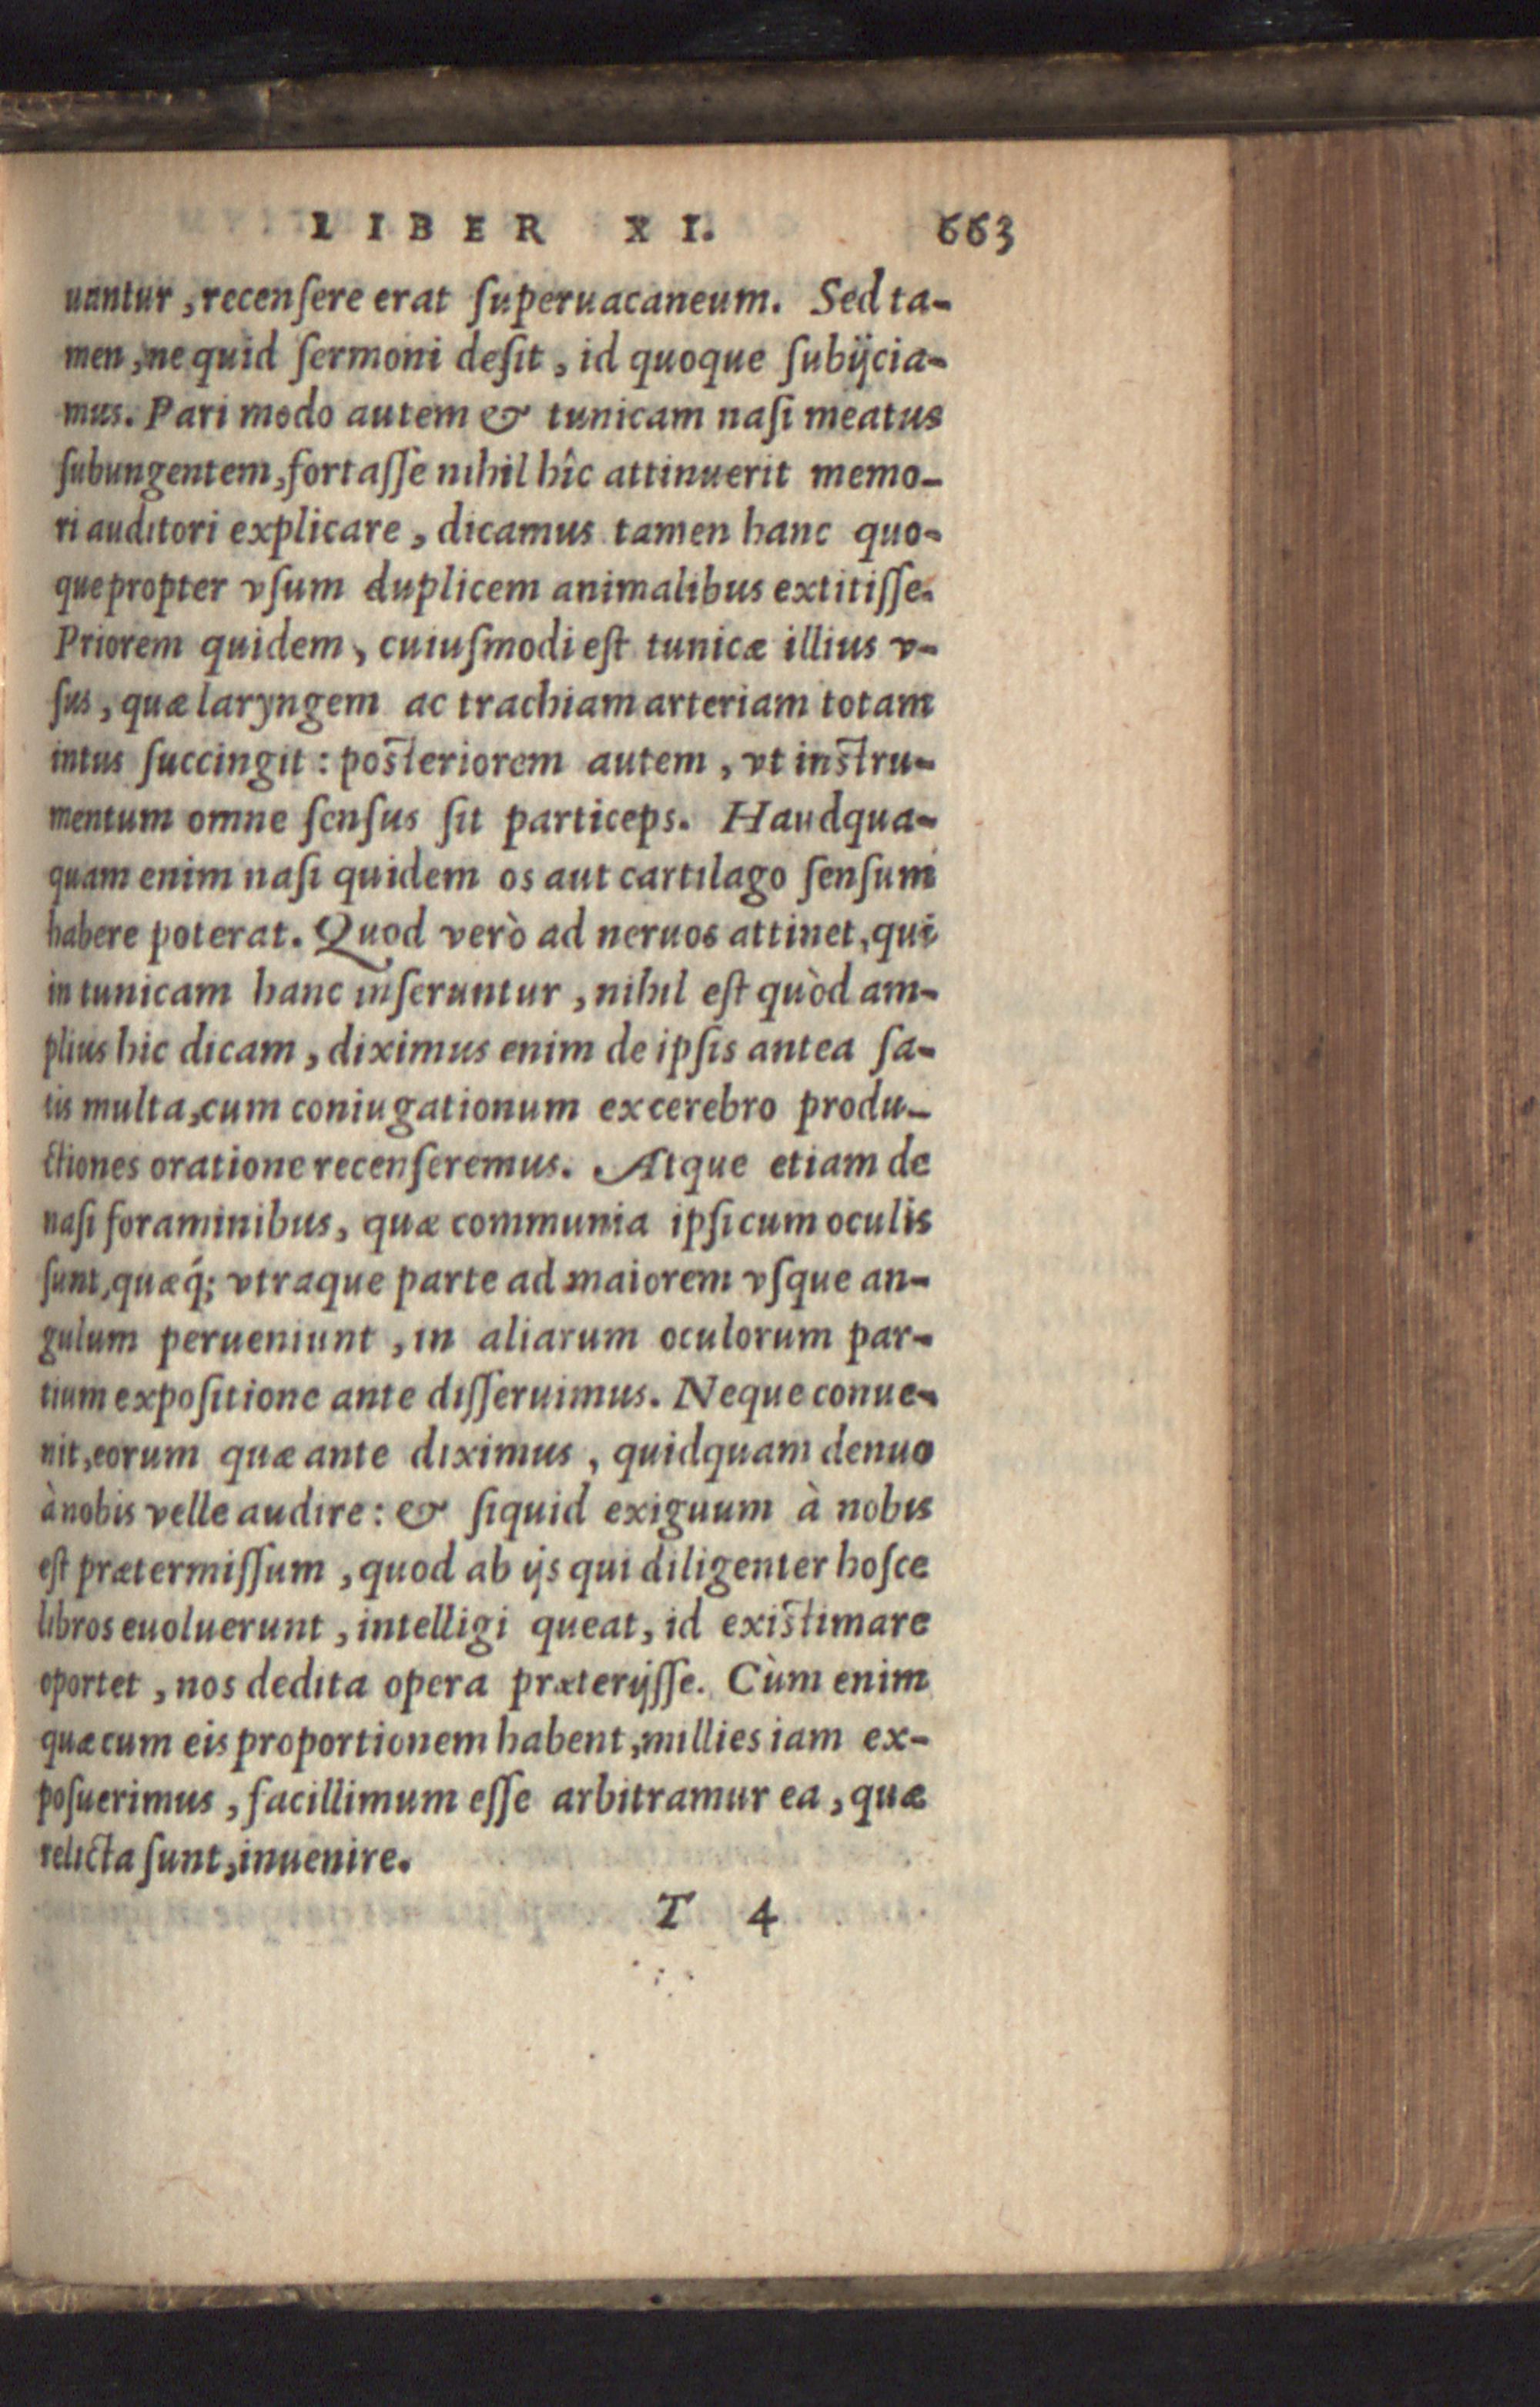 LIBER XI. 663
uantur, recensere erat superuacaneum. Sed ta-
men, ne quid sermoni desit, id quoque subijcia-
mus. Pari modo autem & tunicam nasi meatus
subungentem, fortasse nihil hîc attinuerit memo-
ri auditori explicare, dicamus tamen hanc quo-
que propter vsum duplicem animalibus extitisse.
Priorem quidem, cuiusmodi est tunicæ illius v-
sus, quæ laryngem ac trachiam arteriam totam
intus succingit: posteriorem autem, vt instru-
mentum omne sensus sit particeps. Haudqua-
quam enim nasi quidem os aut cartilago sensum
habere poterat. Quod verò ad neruos attinet, qui
in tunicam hanc inseruntur, nihil est quòd am-
plius hic dicam, diximus enim de ipsis antea sa-
tis multa, cum coniugationum ex cerebro produ-
ctiones oratione recenseremus. Atque etiam de
nasi foraminibus, quæ communia ipsi cum oculis
sunt, quæq́; vtraque parte ad maiorem vsque an-
gulum perueniunt, in aliarum oculorum par-
tium expositione ante disseruimus. Neque conue-
nit, eorum quæ ante diximus, quidquam denuo
à nobis velle audire: & siquid exiguum à nobis
est prætermissum, quod ab ijs qui diligenter hosce
libros euoluerunt, intelligi queat, id existimare
oportet, nos dedita opera præterijsse. Cùm enim
quæ cum eis proportionem habent, millies iam ex-
posuerimus, facillimum esse arbitramur ea, quæ
relicta sunt, inuenire.
T 4